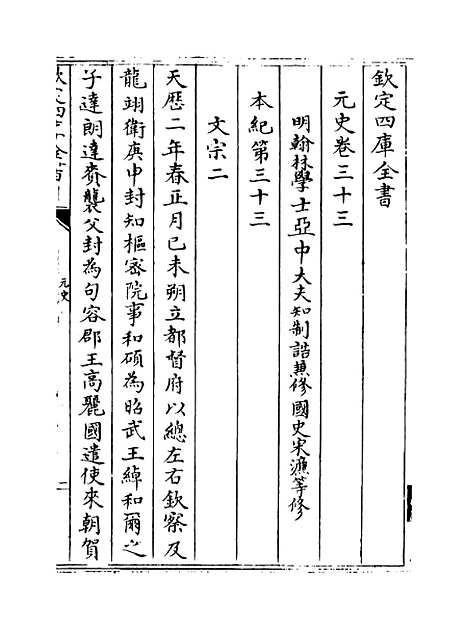 欽定四庫全書
元史卷三十三
明翰林學士亞中大夫知制誥兼修國史宋濂等修
本紀第三十三
文宗二
天歷二年春正月己未朔立都督府以總左右欽察及
龍翊衛庚申封知樞密院事和碩為昭武王綽和爾之
子達朗達賚襲父封為句容郡王高麗國遣使來朝賀
欽定四庫全書
元史